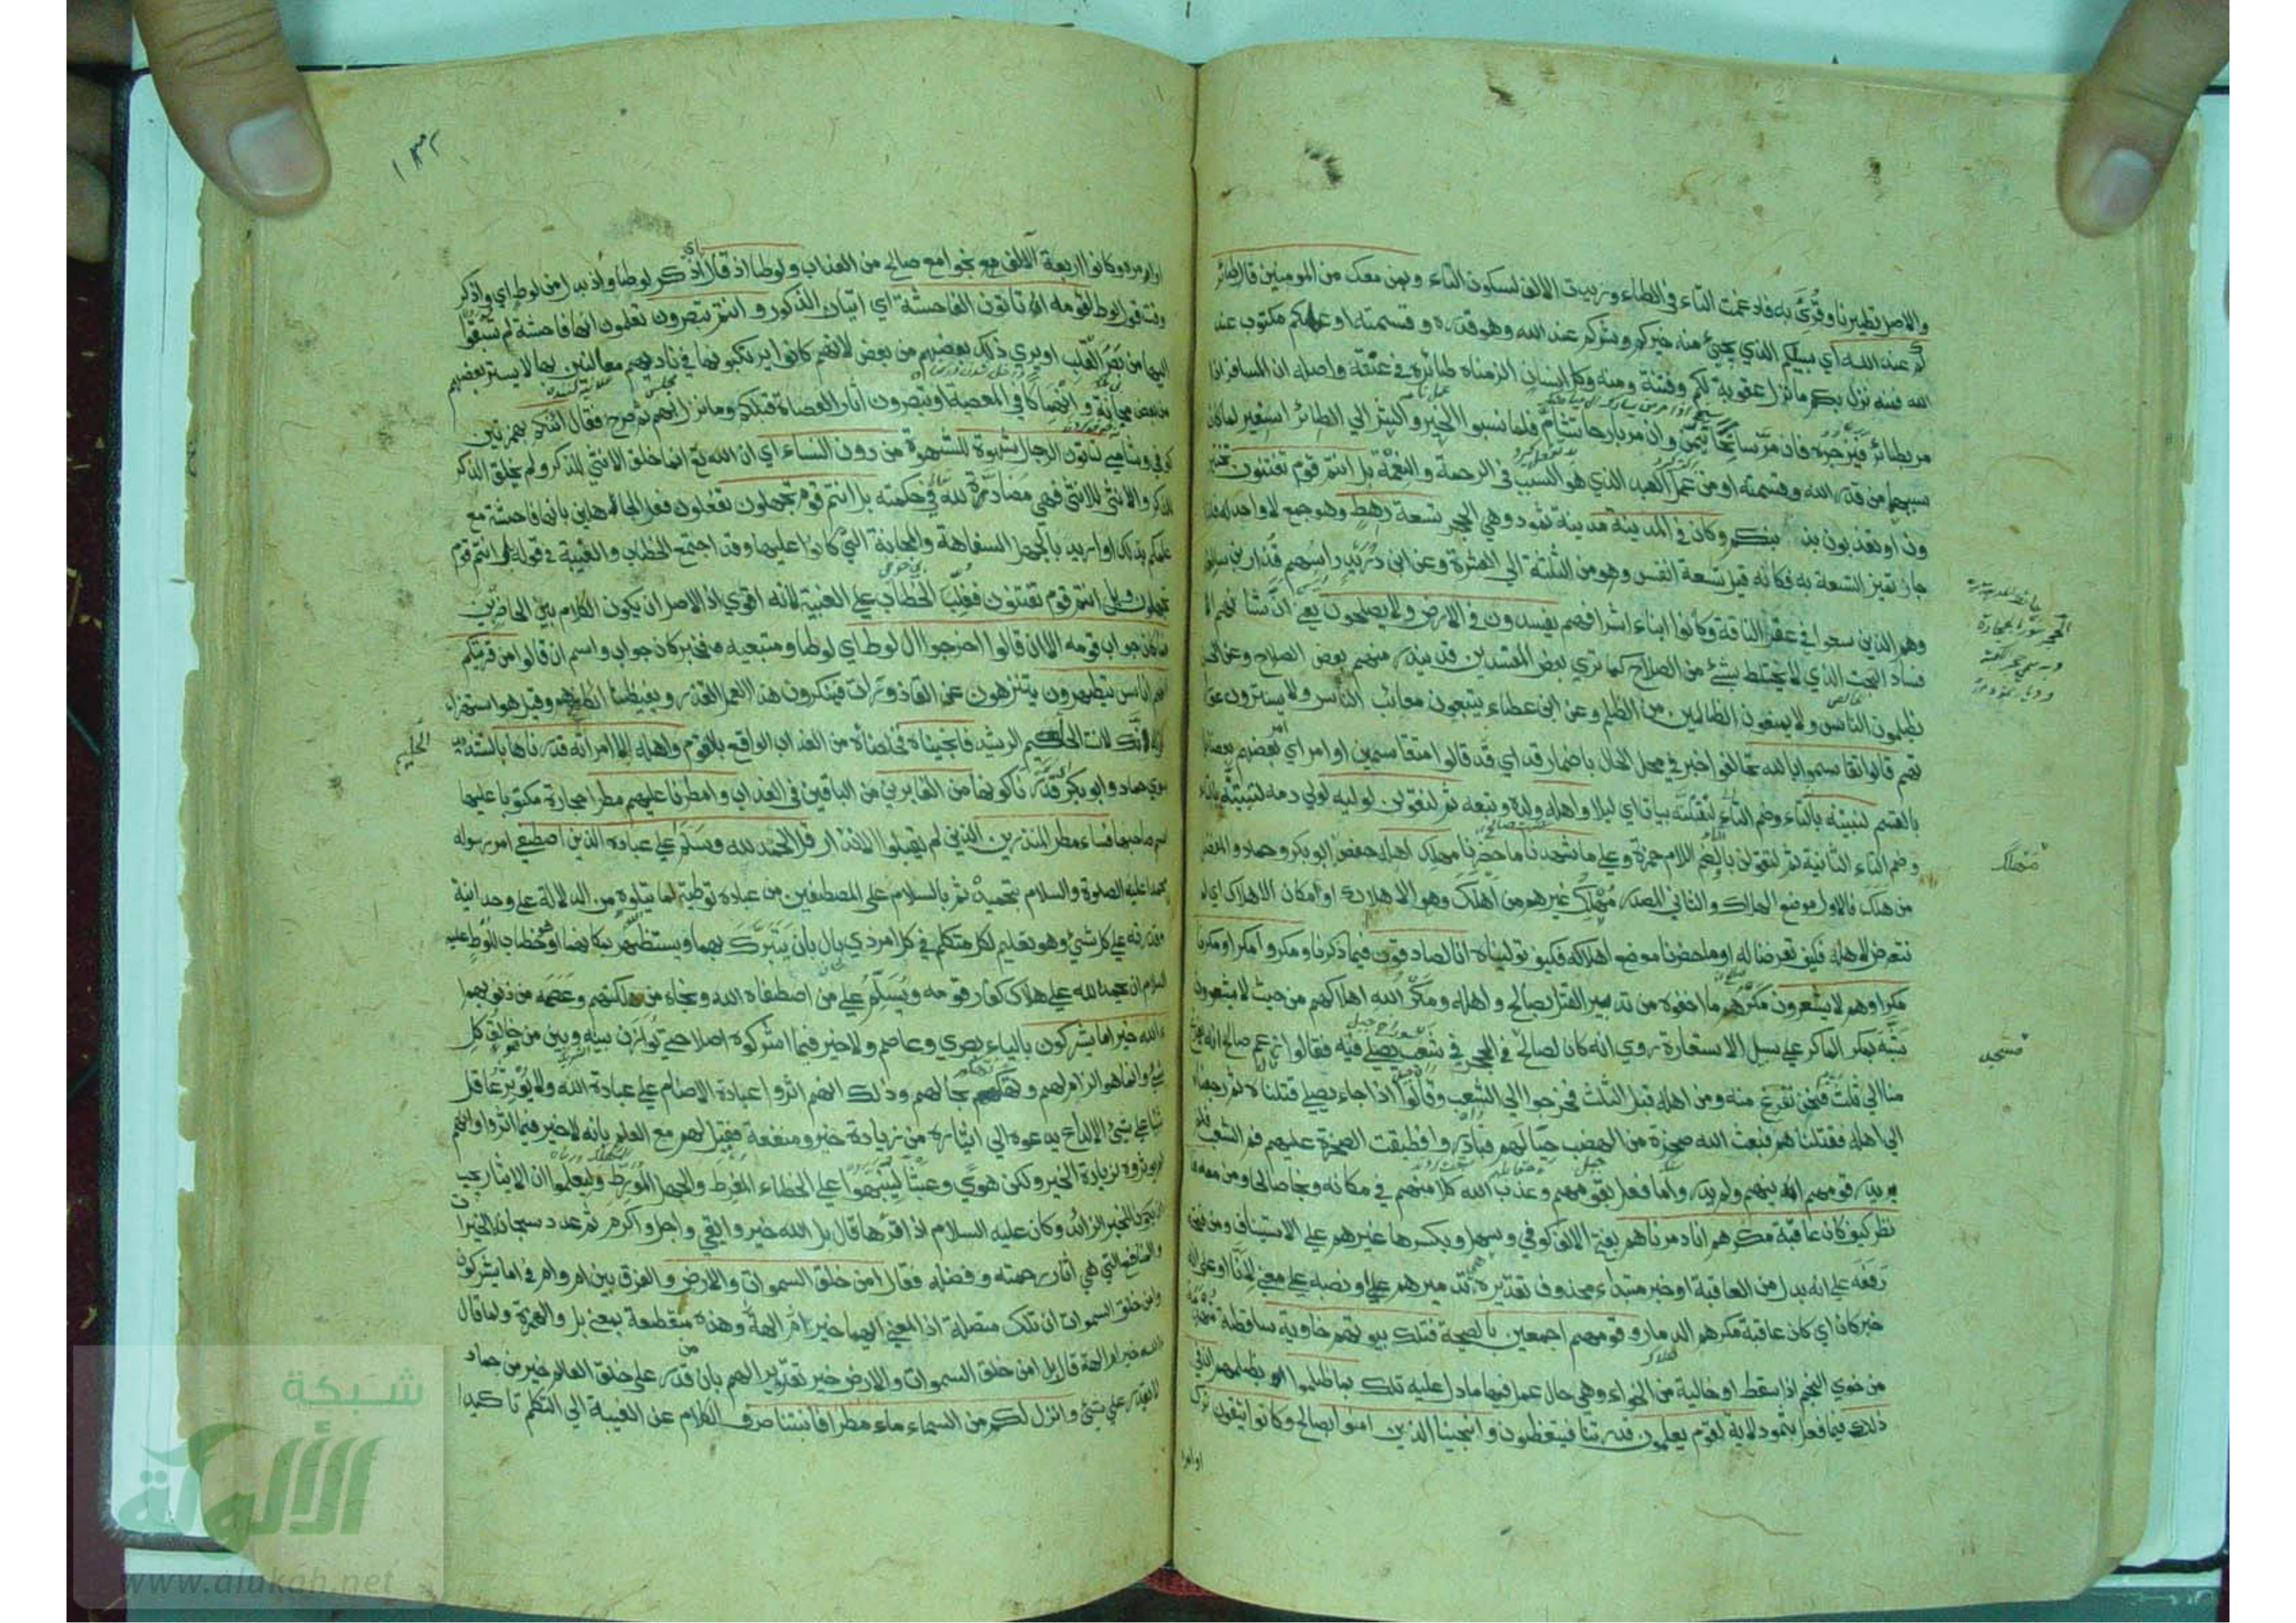 والاصل تطيرنا وقرئ به فادغمت التاء في الطاء وزيدت الالف لسكون التاء وبمن معك من المومنين قال طائر
كم عند الله اي سببكم الذي يجئ منه خيركم وشركم عند الله وهو قدره وقسمته او عملكم مكتوب عند
الله فمنه نزل بكم ما نزل عقوبة لكم وفتنة ومنه وكل انسان الزمناه طائره في عنقه واصله ان المسافر اذا
مر بطائر فيزجره فان مر سانحا تيمن وان مر بارحا تشام فلما نسبوا الخير والشر الي الطائر استعير لما كان
سببهما من قدر الله وقسمته او من عمل العبد الذي هو السبب في الرحمة والنعمة بل انتم قوم تفتنون تختبر
ون او تعذبون بذنبكم وكان في المدينة مدينة ثمود وهي الحجر تسعة رهط وهو جمع لا واحد له فلذا
جاز تميز التسعة به فكانه قيل تسعة انفس وهو من الثلثة الي العشرة وعن ابن دريد راسهم قدار بن سالف
وهم الذين سعوا في عقر الناقة وكانوا ابناء اشرافهم يفسدون في الارض ولا يصلحون يعني ان شانهم الا
فساد البحت الذي لا يختلط بشئ من الصلاح كما تري بعض المفسدين قد يندر منهم بعض الصلاح وعن الحسن
يظلمون الناس ولا يمنعون الظالمين من الظلم وعن ابن عطاء يتبعون معائب الناس ولا يسترون عو
تهم قالوا تقاسموا بالله تحالفوا خبر في محل الحال باضمار قد اي قد قالوا متقاسمين او امر اي امر بعضهم بعضا
بالقسم لنبيتنه بالتاء وضم التاء لنقتلنه بياتا اي ليلا واهله ولده وتبعه ثم لنقولن لوليه لولي دمه لتبيتنه بالتاء
وضم التاء الثانية ثم لتقولن بالتاء وضم اللام حمزة وعلي ما شهدنا ما حضرنا مهلك اهله حفص ابو بكر وحماد والمفضل
من هلك فالاول موضع الهلاك والثاني المصدر مهلك غيرهم من اهلك وهو الاهلاك او مكان الاهلاك اي لم
نتعرض لاهله فكيف تعرضنا له او ما حضرنا موضع اهلاكه فكيف توليناه انا لصادقون فيما ذكرنا ومكروا مكرا ومكرنا
مكرا وهم لا يشعرون مكرهم ما اخفوه من تدبير القتل بصالح واهله ومكر الله اهلاكهم من حيث لا يشعرون
شبه بمكر الماكر علي سبيل الاستعارة روي انه كان لصالح في الحجر في شعب يصلي فيه فقالوا زعم صالح انه يفرغ
منا الي ثلث فنحن نفرغ منه ومن اهله قبل الثلث فخرجوا الي الشعب وقالوا اذا جاء يصلي قتلناه ثم رجعنا
الي اهله فقتلناهم فبعث الله صخرة من الهضب حيالهم فبادروا فطبقت الصخرة عليهم فم الشعب فلم
يدر قومهم اين هم ولم يدروا ما فعل بقومهم وعذب الله كلا منهم في مكانه ونجا صالحا ومن معه فا
نظر كيف كان عاقبة مكرهم انا دمرناهم بفتح الالف كوفي وسهل وبكسرها غيرهم علي الاستيناف ومن فتحه
رفعه علي انه بدل من العاقبة او خبر مبتداء محذوف تقديره هي تدميرهم او نصبه علي معني لانا او علي انه
خبر كان اي كان عاقبة مكرهم الدمار وقومهم اجمعين بالصيحة فتلك بيوتهم خاوية ساقطة
من خوي النجم اذا سقط او خالية من الخواء وهي حال عمل فيها ما دل عليه تلك بما ظلموا بظلمهم ان في
ذلك فيما فعل بثمود لاية لقوم يعلمون قدرتنا فيتعظون وانجينا الذين امنوا بصالح وكانوا يتقون ترك
اوامره
مهلك
١٣٢
اوامره وكانوا اربعة الاف مع نجوا مع صالح من العذاب ولوطا اذ قال اي اذكر لوطا واذ بدل من لوط اي واذكر
وقت قول لوط لقومه اتاتون الفاحشة اي اتيان الذكور وانتم تبصرون تعلمون انها فاحشة لم تسبقوا
اليها من بصر القلب او يري ذلك بعضهم من بعض لانهم كانوا يرتكبونها في ناديهم معالنين بها لا يستتر بعضهم
من بعض مجانة وانهماكا في المعصية او تبصرون اثار العصاة قبلكم وما نزل بهم ثم صرح فقال ائنكم بهمزتين
كوفي وشامي لتاتون الرجال شهوة للشهوة من دون النساء اي ان الله تع انما خلق الانثي للذكر ولم يخلق الذكر
للذكر والا الانثي للانثي فهي مضادة لله في حكمته بل انتم قوم تجهلون تفعلون فعل الجاهلين بانها فاحشة مع
علمكم بذلك او اريد بالجهل السفاهة والمجانة التي كانوا عليها وقد اجتمع الخطاب والغيبة في قوله بل انتم قوم
تجهلون وبل انتم قوم تفتنون فغلب الخطاب علي الغيبة لانه اقوي اذ الاصل ان يكون الكلام بين الحاضرين
فما كان جواب قومه الا ان قالوا اخرجوا ال لوط اي لوطا ومتبعيه فخبر كان جواب واسم ان قالوا من قريتكم
انهم اناس يتطهرون يتنزهون عن القاذورات فينكرون هذا العمل القذر ويغيظنا انكارهم وقيل هو استهزاء
كقوله انك لانت الحليم الرشيد فانجيناه فخلصناه من العذاب الواقع بالقوم واهله الا امراته قدرناها بالتشديد
سوي حماد وابو بكر قدرنا كونها من الغابرين من الباقين في العذاب وامطرنا عليهم مطرا حجارة مكتوبا عليها
اسم صاحبها فساء مطر المنذرين الذين لم يقبلوا الانذار قل الحمد لله وسلم علي عباده الذين اصطفي امر رسوله
محمدا عليه الصلوة والسلام بتحميده ثم بالسلام علي المصطفين من عباده توطية لما يتلوه من الدلالة علي وحدانية
وقدرته علي كل شئ وهو تعليم لكل متكلم في كل امر ذي بال بان يتبرك بهما ويستظهر بمكانهما او هو خطاب للوط عليه
السلام ان يحمد الله علي هلاك كفار قومه ويسلم علي من اصطفاه الله ونجاه من هلكتهم وعصمه من ذنوبهم ا
ءالله خير اما يشركون بالياء بصري وعاصم ولا خير فيما اشركوه اصلا حتي توازن بينه وبين من هو خالق كل
شئ وانما هو الزام لهم وتهكم بحالهم وذلك انهم اثروا عبادة الاصنام علي عبادة الله ولا يؤثر عاقل
شيا علي شئ الا لداع يدعوه الي ايثاره من زيادة خير ومنفعة فقيل لهم مع العلم بانه لا خير فيما اثروا وانهم
لم يؤثروه لزيادة الخير ولكن هوي وعبثا لينبهوا علي الخطاء المفرط والجهل المورط وليعلموا ان الايثار يجب
ان يكون للخير الزائد وكان عليه السلام اذا قرأها قال بل الله خير وابقي واجل واكرم ثم عدد سبحانه الخيرات
والمنافع التي هي اثار رحمته وفضله فقال امن خلق السموات والارض والفرق بين ام وام في اما يشركون
وامن خلق السموات ان تلك متصلة اذ المعني ايهما خير ام الهة وهذه منقطعة بمعني بل والهمزة ولما قال
الله خير ام الهة قال بل امن خلق السموات والارض خير تقريرا لهم بان من قدر علي خلق العالم خير من جماد
لا يقدر علي شئ وانزل لكم من السماء ماء مطرا فانبتنا صرف الكلام عن الغيبة الي التكلم تاكيدا
الحليم
شبكة
الألوكة
www.alukah.net